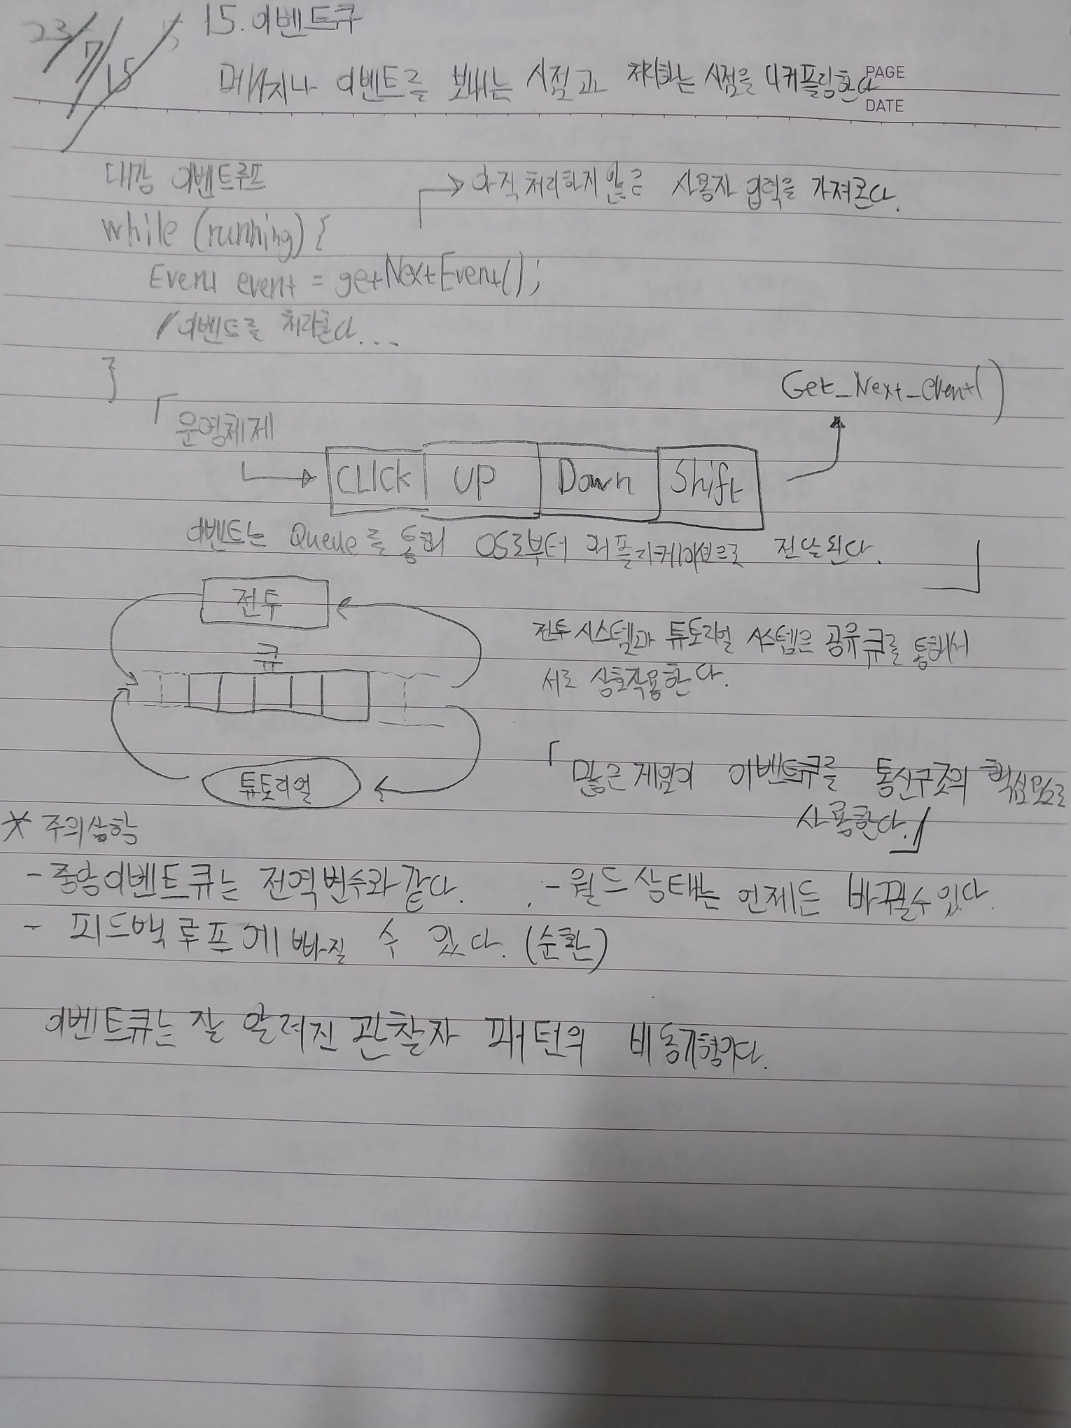 23/7/15,
15. 이벤트큐
메세지나 이벤트를 보내는 시점과 처리하는 시점을 디커플링한다
PAGE
DATE
대강 이벤트루프
→ 아직 처리하지 않은 사용자 입력을 가져온다.
while (running) {
Event event = getNextEvent();
/이벤트를 처리한다...
}
Get_Next_event()
「운영체제
CLICK UP Down Shift
이벤트는 Queue를 통해 OS로부터 어플리케이션으로 전달된다.」
전투
큐
전투 시스템과 튜토리얼 시스템은 공유 큐를 통해서
서로 상호작용한다.
튜토리얼
「많은 게임이 이벤트큐를 통신구조의 핵심으로
사용한다.」
* 주의사항
- 중앙이벤트큐는 전역변수와 같다.
- 월드 상태는 언제든 바뀔수있다.
- 피드백 루프에 빠질 수 있다. (순환)
이벤트큐는 잘 알려진 관찰자 패턴의 비동기형이다.